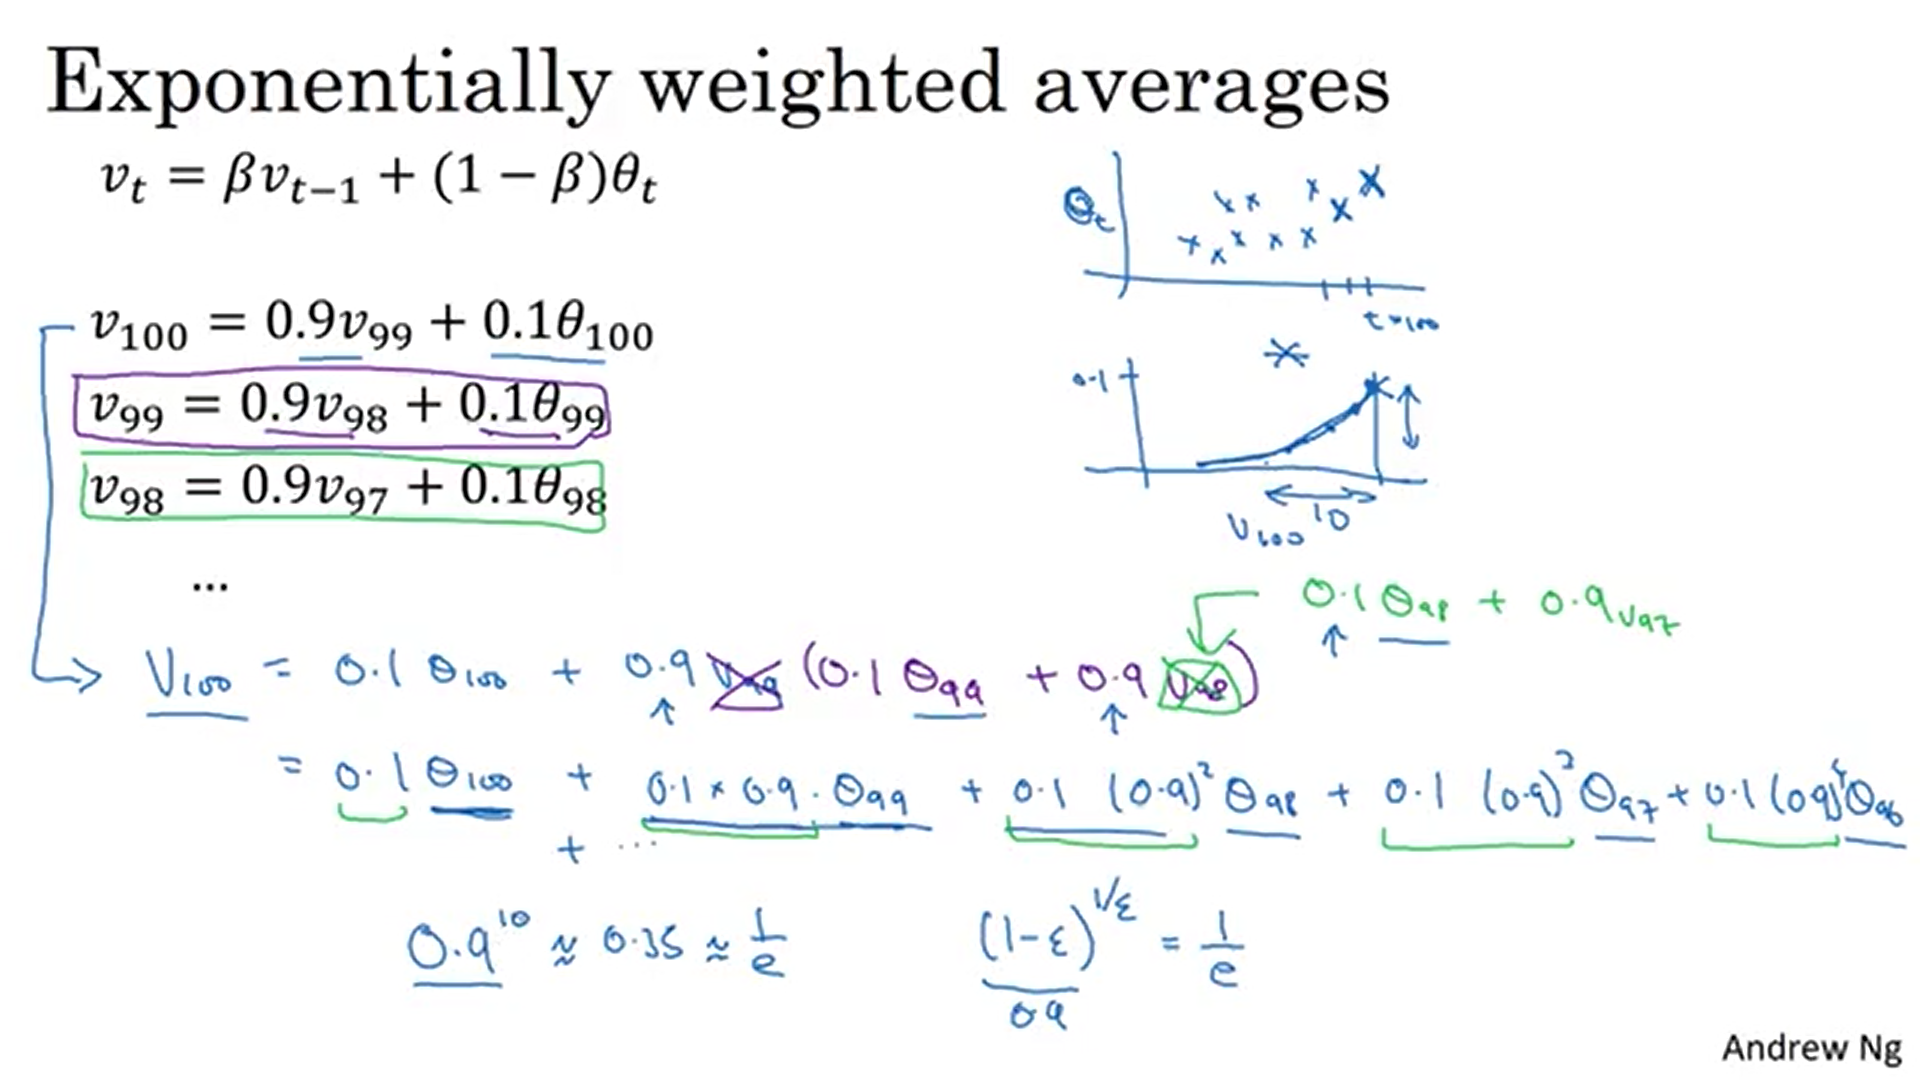 Exponentially weighted averages
v_t = βv_{t−1} + (1 − β)θ_t
θ_t
t=100
v_100 = 0.9v_99 + 0.1θ_100
v_99 = 0.9v_98 + 0.1θ_99
v_98 = 0.9v_97 + 0.1θ_98
...
0.1
10
V_100
0.1 θ_98 + 0.9 V_97
V_100 = 0.1 θ_100 + 0.9 V_99 (0.1 θ_99 + 0.9 V_98)
= 0.1 θ_100 + 0.1 × 0.9 · θ_99 + 0.1 (0.9)^2 θ_98 + 0.1 (0.9)^3 θ_97 + 0.1 (0.9)^4 θ_96
+ ...
0.9^10 ≈ 0.35 ≈ 1/e
(1-ε)^{1/ε} = 1/e
0.9
Andrew Ng